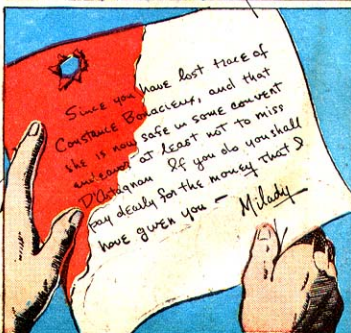 Since you have lost trace of
Constance Bonacieux, and that
she is now safe in some convent
endeavor at least not to miss
D'Artagnan If you do you shall
pay dearly for the money that I
have given you —
Milady